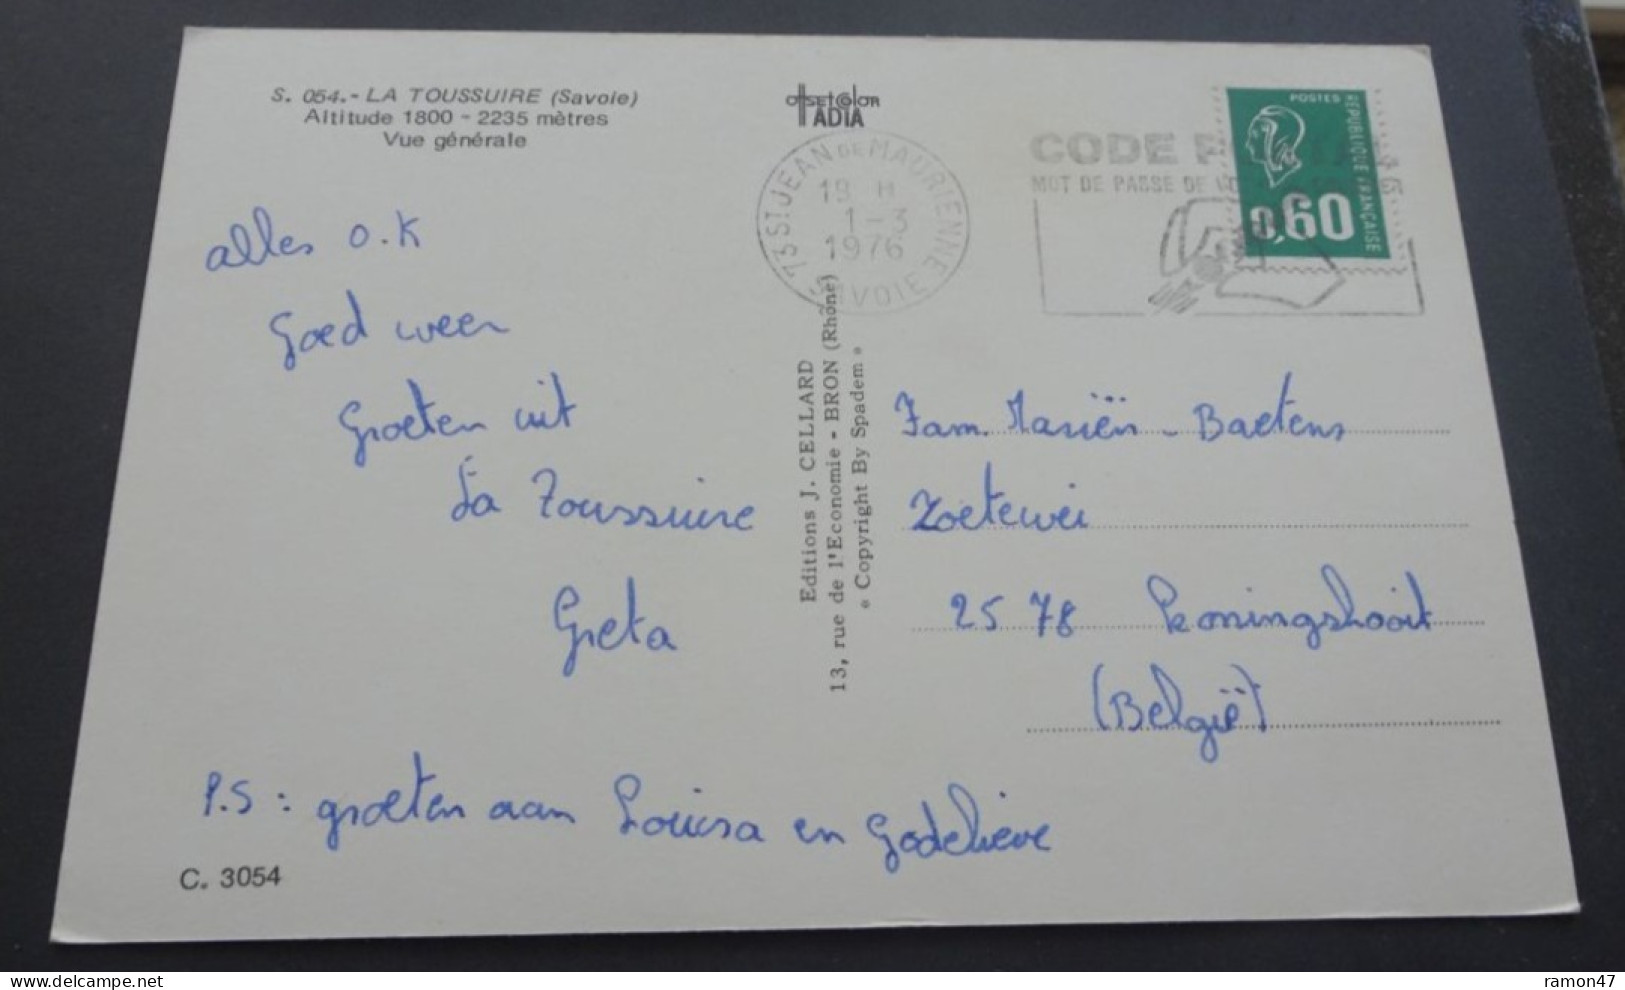 S. 054.- LA TOUSSUIRE (Savoie)
Altitude 1800 - 2235 mètres
Vue générale
alles o.k
Goed weer
Groeten uit
La Toussuire
Greta
P.S : groeten aan Louisa en Godelieve
C. 3054
OFFSETCOLOR
TADIA
73 ST JEAN DE MAURIENNE
19 H
1 - 3
1976
SAVOIE
Editions J. CELLARD
13, rue de l'Economie - BRON (Rhône)
« Copyright By Spadem »
CODE
MOT DE PASSE DE
POSTES
REPUBLIQUE FRANÇAISE
0,60
Fam. Mariën - Baetens
Zoetewei
2578 Koningshooit
(België)
ramon47